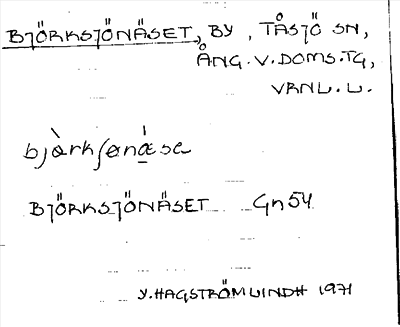 BJÖRKSJÖNÄSET, BY, TÅSJÖ SN,
ÅNG. V. DOMS. TG,
VRNL. L.
BJÖRKSJÖNÄSET Gn 54
Y. HAGSTRÖM LINDH 1971